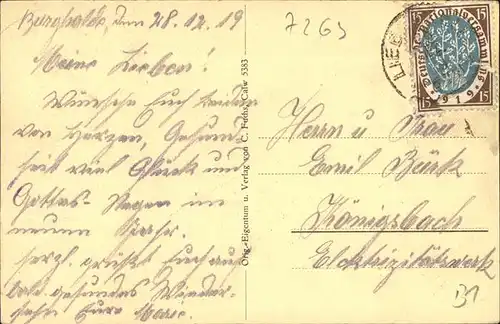 Burghalde, den 28.12.19
Meine Lieben!
Wünsche Euch beiden
von Herzen, Gesund-
heit viel Glück und
Gottes-Segen im
neuen Jahr.
herzl. grüßt Euch auf
gesundes Wieder-
sehn Eure Marie.
Orig.-Eigentum u. Verlag von C. Fuchs, Calw 5383
7263
Deutsche Nationalversammlung
1919
15 15
15 15
Herrn u Frau
Emil Bürk
Königsbach
Elektrizitätswerk
B1